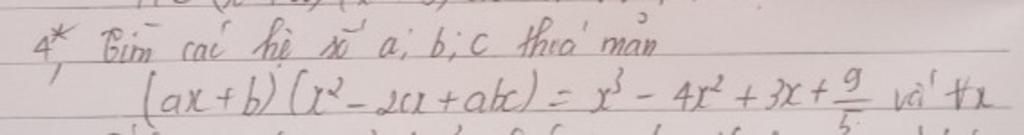 4*, Tìm các hệ số a; b; c thoả mãn
(ax + b)(x² - 2cx + abc) = x³ - 4x² + 3x + 9/5 với ∀x